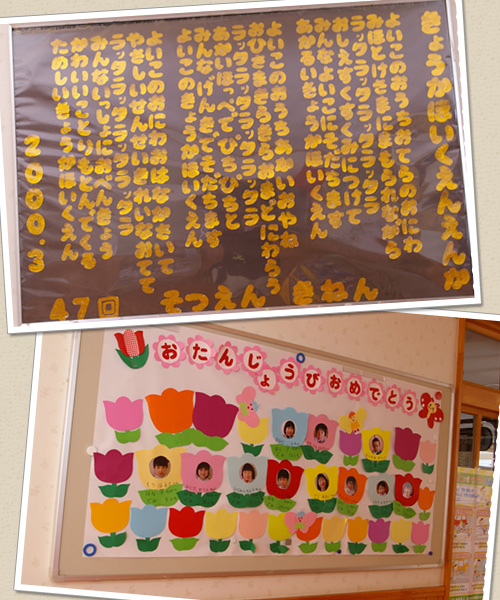 きょうかほいくえんえんか
よいこのおうちおてらのおにわ
みほとけさまにまもられながら
ラッタラッタラッタラ
おしえすくすくみにつけて
みんなよいこにそだちます
あかるいきょうかほいくえん
よいこのおうちあかいおやね
おひさまきらきらまどにわらう
ラッタラッタラッタラ
あかいほっぺでぴちぴちと
みんなげんきでそだちます
よいこのきょうかほいくえん
よいこのおにわおはながさいて
やさしいせんせいきれいなおてて
ラッタラッタラッタラ
みんないっしょにおべんきょう
かわいいことりもとんでくる
たのしいきょうかほいくえん
2000.3
47回 そつえん きねん
おたんじょうびおめでとう